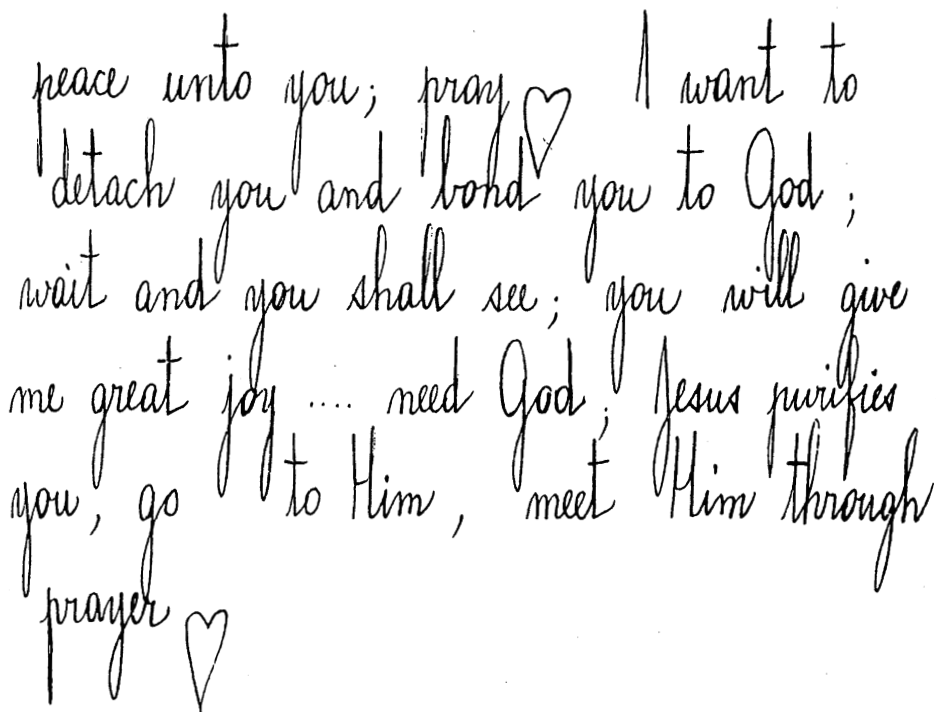 peace unto you; pray ♡ I want to
detach you and bond you to God;
wait and you shall see; you will give
me great joy .... need God; Jesus purifies
you, go to Him, meet Him through
prayer ♡